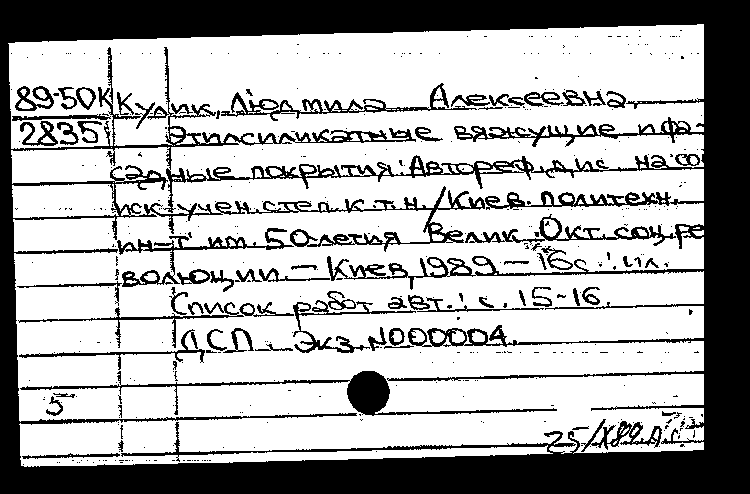 89-50К Кулик, Людмила Алексеевна.
2835 Этилсиликатные вяжущие и фа-
садные покрытия: Автореф. дис. на со
иск. учен. степ. к.т.н. / Киев. политехн.
ин-т им. 50-летия Велик. Окт. соц. ре
волюции. - Киев, 1989. - 16с.: ил.
Список работ авт.: с. 15-16.
ДСП. Экз. N000004.
5
25/X89